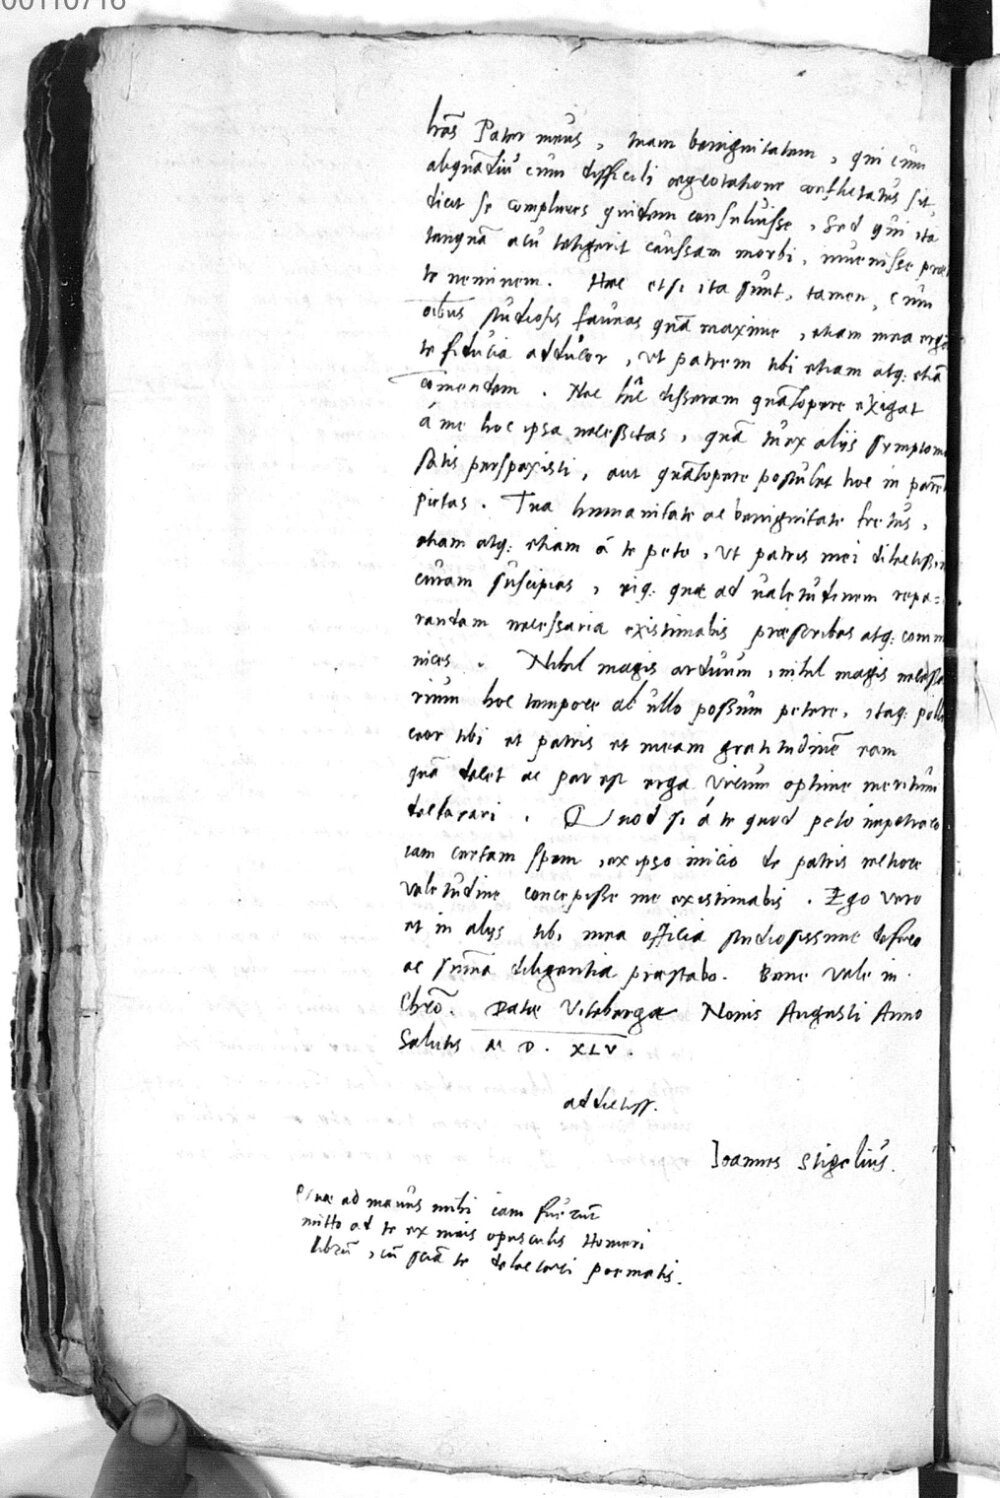 00110716
Pater meus, tuam benignitatem, qui cum
aliquādiu cum difficili aegrotatione conflictatus sit
dicit se complures quidem consuluisse, sed qui ita
tanquā acu tetigerit caussam morbi, invenisse præ
te neminem. Hæc etsi ita sunt, tamen, cum
oībus studiosis faveas quā maxime, etiam mea erga
te fiducia adducor, ut patrem tibi etiam atq: etiā
comendem. Nec hîc disseram quātopere exigat
á me hoc ipsa necessitas, quā tu ex alijs symptom
satis perspexisti, aut quātopere postulet hoc in parē
pietas. Tua humanitate ac benignitate fretus,
etiam atq: etiam á te peto, ut patris mei dilectissi
curam suscipias, eiq: quæ ad valetudinem repa=
randam necessaria existimabis præscribas atq: comm
nices. Nihil magis arduum, nihil magis necessa
rium hoc tempore ab ullo possum petere, itaq: polli
ceor tibi et patris et meam gratitudinē eam
quā decet ac par est erga virum optime meritum
declarari. Quod si á te quod peto impetraro
iam certam spem, ex ipso initio de patris meliore
valetudine concepisse me existimabis. Ego vero
et in alijs tibi mea officia studiosissime defero
ac sūma diligentia præstabo. Bene vale in
Chrō. Datæ Vitebergæ Nonis Augusti Anno
Salutis M D. XLV.
addictiss.
Ioannes Stigelius.
Quæ ad manus mihi iam fuerūt
mitto ad te ex meis opusculis Homeri
librū, cū sciā te delectari poematis.